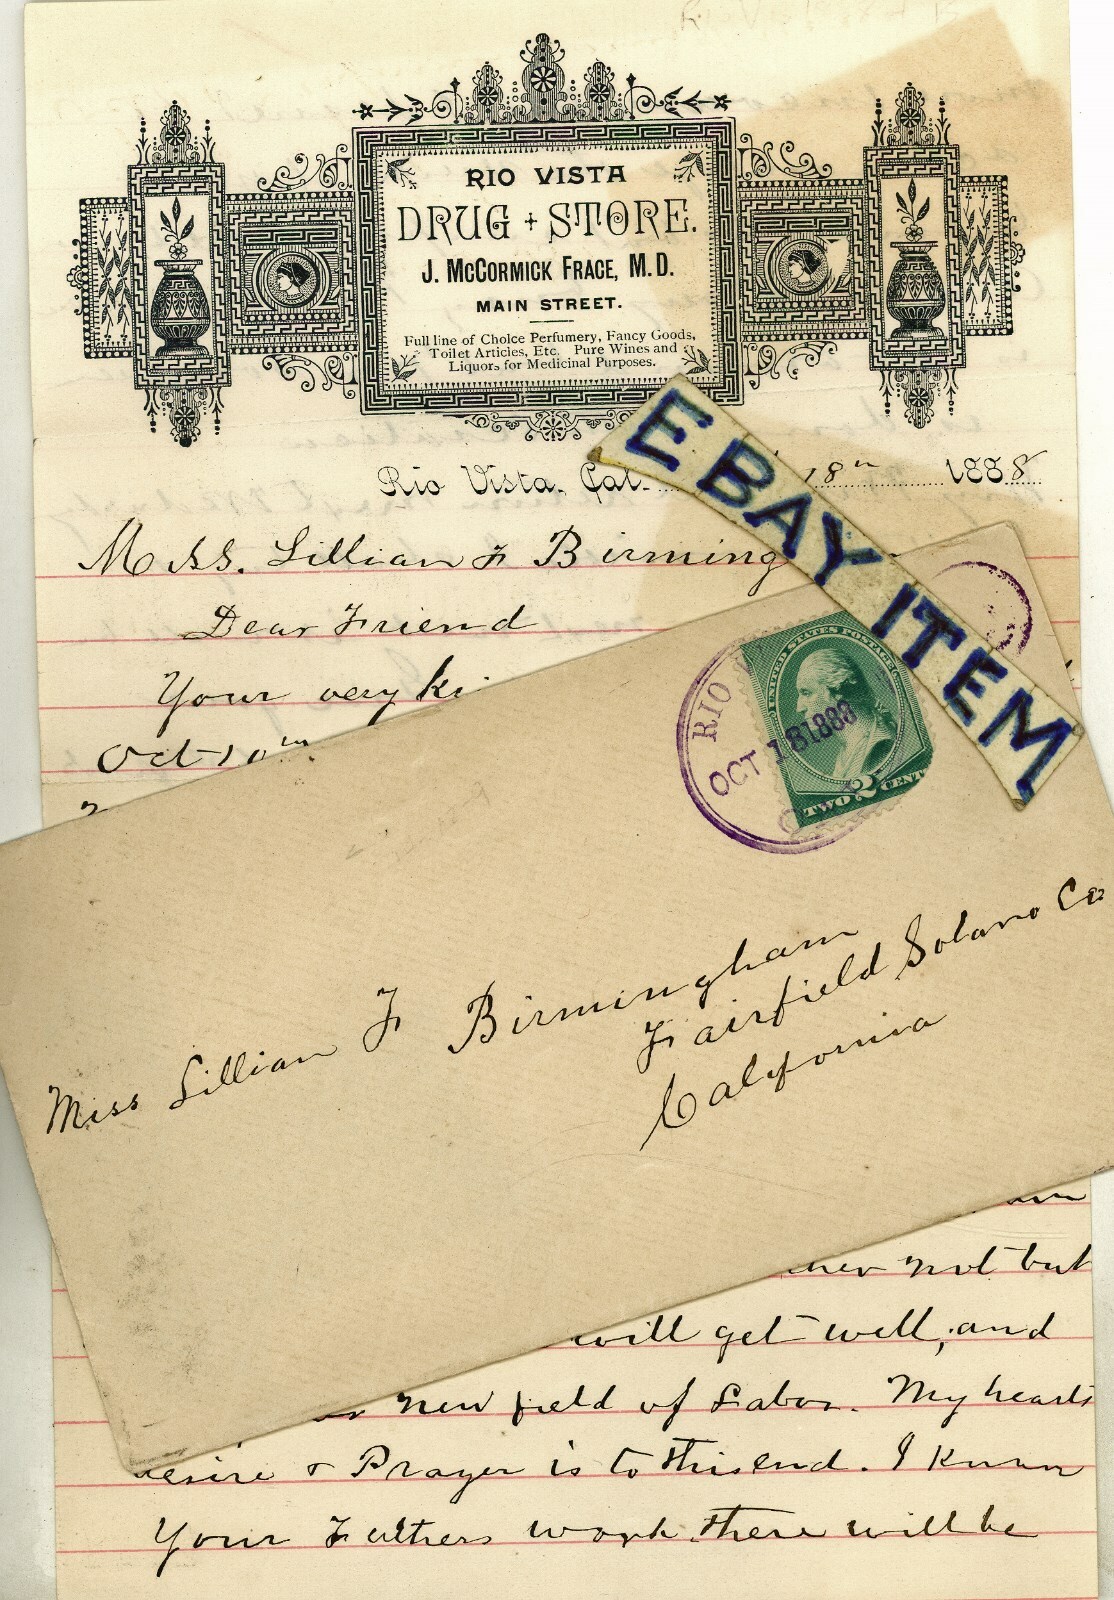 RIO VISTA
DRUG + STORE.
J. McCORMICK FRACE, M.D.
MAIN STREET.
Full line of Choice Perfumery, Fancy Goods,
Toilet Articles, Etc. Pure Wines and
Liquors for Medicinal Purposes.
Rio Vista, Cal. 18th 1888
EBAY ITEM
Miss. Lillian F Birming
Dear Friend
Your very ki
Oct 10th
UNITED STATES POSTAGE
TWO 2 CENT
RIO V
OCT 18 1888
Miss Lillian F Birmingham
Fairfield Solano Co
California
not but
will get well, and
new field of Labor. My hearts
esire & Prayer is to this end. I know
Your Fathers work there will be